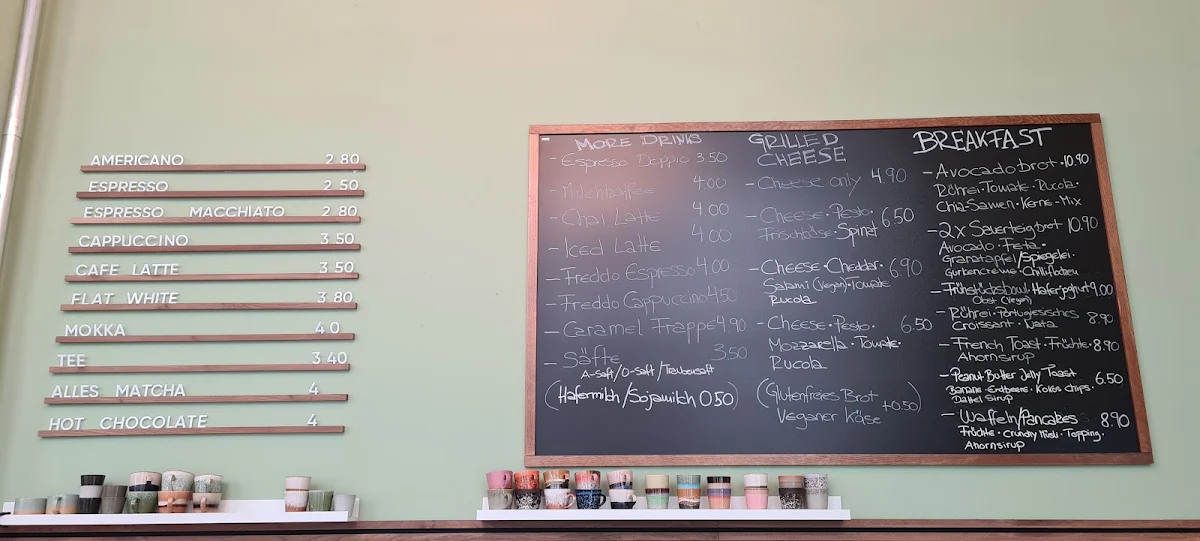 AMERICANO 2.80
ESPRESSO 2.50
ESPRESSO MACCHIATO 2.80
CAPPUCCINO 3.50
CAFE LATTE 3.50
FLAT WHITE 3.80
MOKKA 4.0
TEE 3.40
ALLES MATCHA 4
HOT CHOCOLATE 4
MORE DRINKS
- Espresso Doppio 3.50
- Milchkaffee 4.00
- Chai Latte 4.00
- Iced Latte 4.00
- Freddo Espresso 4.00
- Freddo Cappuccino 4.50
- Caramel Frappé 4.90
- Säfte 3.50
A-Saft/O-Saft/Traubensaft
(Hafermilch/Sojamilch 0.50)
GRILLED
CHEESE
- Cheese only 4.90
- Cheese · Pesto · 6.50
Frischkäse · Spinat
- Cheese · Cheddar · 6.90
Salami (Vegan) · Tomate
Rucola
- Cheese · Pesto · 6.50
Mozzarella · Tomate ·
Rucola
(Glutenfreies Brot
Veganer Käse +0.50)
BREAKFAST
- Avocadobrot · 10.90
Rührei · Tomate · Rucola ·
Chia-Samen · Kerne-Mix
- 2x Sauerteigbrot 10.90
Avocado · Feta ·
Granatapfel/Spiegelei ·
Gurkencreme · Chiliflocken
- Frühstücksbowl · Haferjoghurt 9.00
Obst (Vegan)
- Rührei · Portugiesisches 8.90
Croissant · Nata
- French Toast · Früchte · 8.90
Ahornsirup
- Peanut Butter Jelly Toast 6.50
Banane · Erdbeere · Kokos Chips ·
Dattel Sirup
- Waffeln/Pancakes 8.90
Früchte · Crunchy Müsli · Topping ·
Ahornsirup